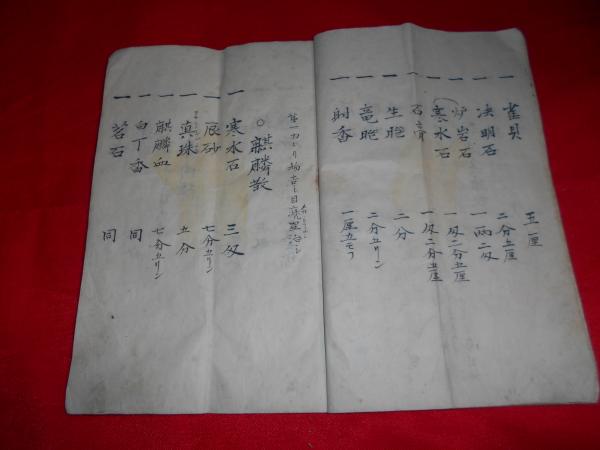 一 雀貝 五厘
一 决明石 二分五厘
一 炉岩石 一両二匁
一 寒水石 一匁二分五厘
一 石膏 一匁二分五厘
一 生胞 二分
一 竜胞 二分五リン
一 射香 一厘五モウ
○麒麟散
一 寒水石 三匁
一 辰砂 七分五リン
一 真珠 五分
一 麒麟血 七分五リン
一 白丁香 同
一 石 同